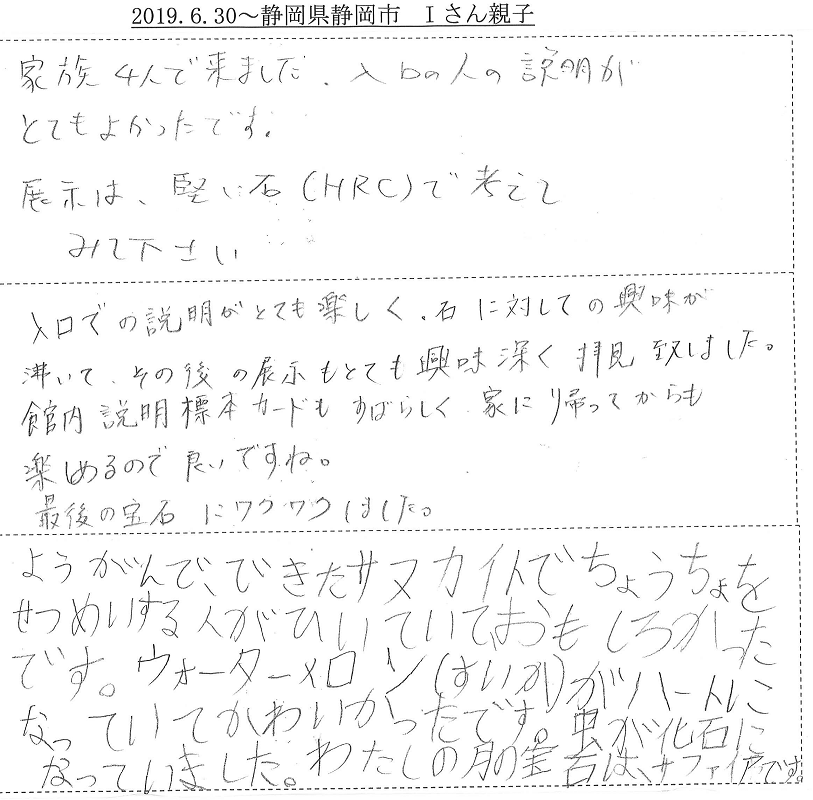 2019.6.30～静岡県静岡市　Iさん親子
家族4人で来ました．入口の人の説明が
とてもよかったです．
展示は、堅い石(HRC)で考えて
みて下さい
入口での説明がとても楽しく、石に対しての興味が
沸いて、その後の展示もとても興味深く拝見致しました。
館内説明標本カードもすばらしく、家に帰ってからも
楽しめるので良いですね。
最後の宝石にワクワクしました。
ようがんで、できたサヌカイトでちょうちょを
せつめいする人がひいていて、おもしろかった
です。ウォーターメロン(すいか)がハートに
なっていてかわいかったです。虫が化石に
なっていました。わたしの月の宝石は、サファイアです。